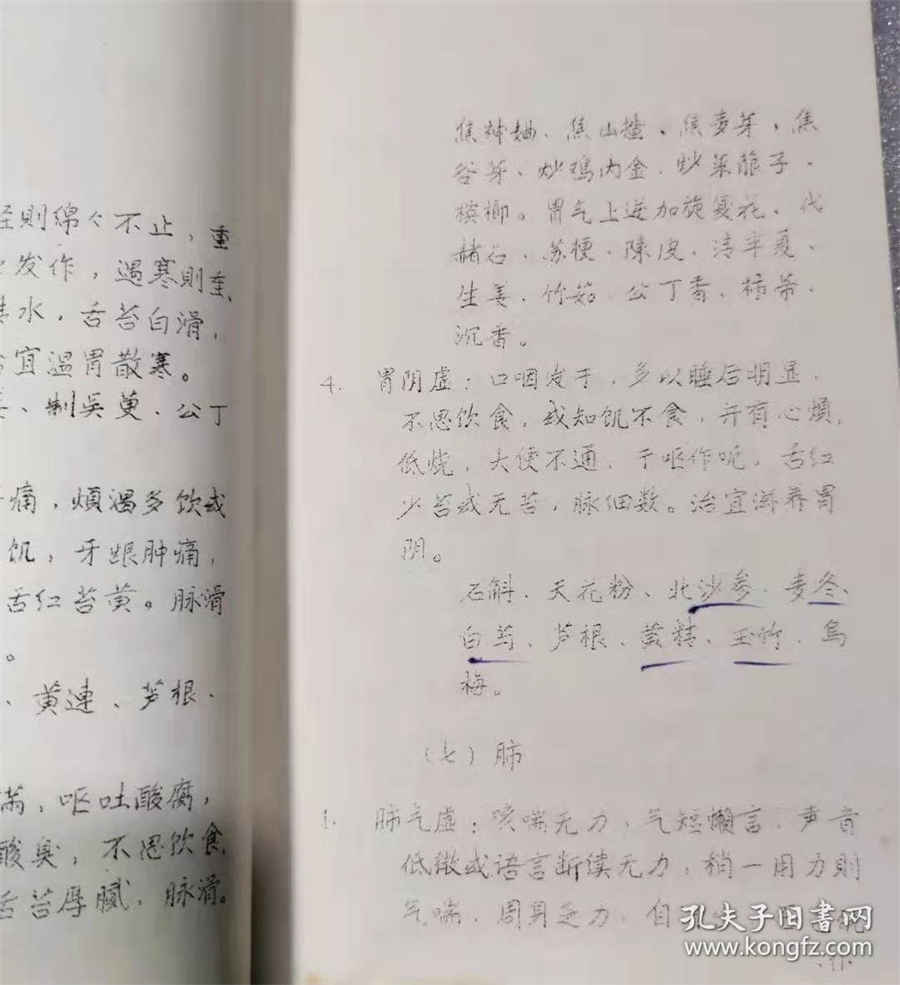 则绵々不止，重
发作，遇寒則重
水，舌苔白滑，
宜温胃散寒。
、制吴萸、公丁
痛，烦渴多饮或
饥，牙龈肿痛，
舌红苔黄。脉滑
。
、黄連、芦根、
满，呕吐酸腐，
酸臭，不思饮食
舌苔厚腻，脉滑。
焦神曲、焦山楂、焦麦芽，焦
谷芽、炒鸡内金、炒莱菔子、
槟榔。胃气上逆加旋复花、代
赭石、苏梗、陳皮、清半夏、
生姜、竹茹、公丁香、柿蒂、
沉香。
4. 胃阴虚：口咽发干，多以睡后明显，
不思饮食，或知饥不食，并有心烦，
低烧，大便不通，干呕作呃，舌红
少苔或无苔，脉细数。治宜滋养胃
阴。
石斛、天花粉、北沙参、麦冬、
白芍、芦根、黄精、玉竹、乌
梅。
（七）肺
1. 肺气虚：咳喘无力，气短懒言，声音
低微或语言断续无力，稍一用力則
气喘，周身乏力，自
孔夫子旧书网
www.kongfz.com